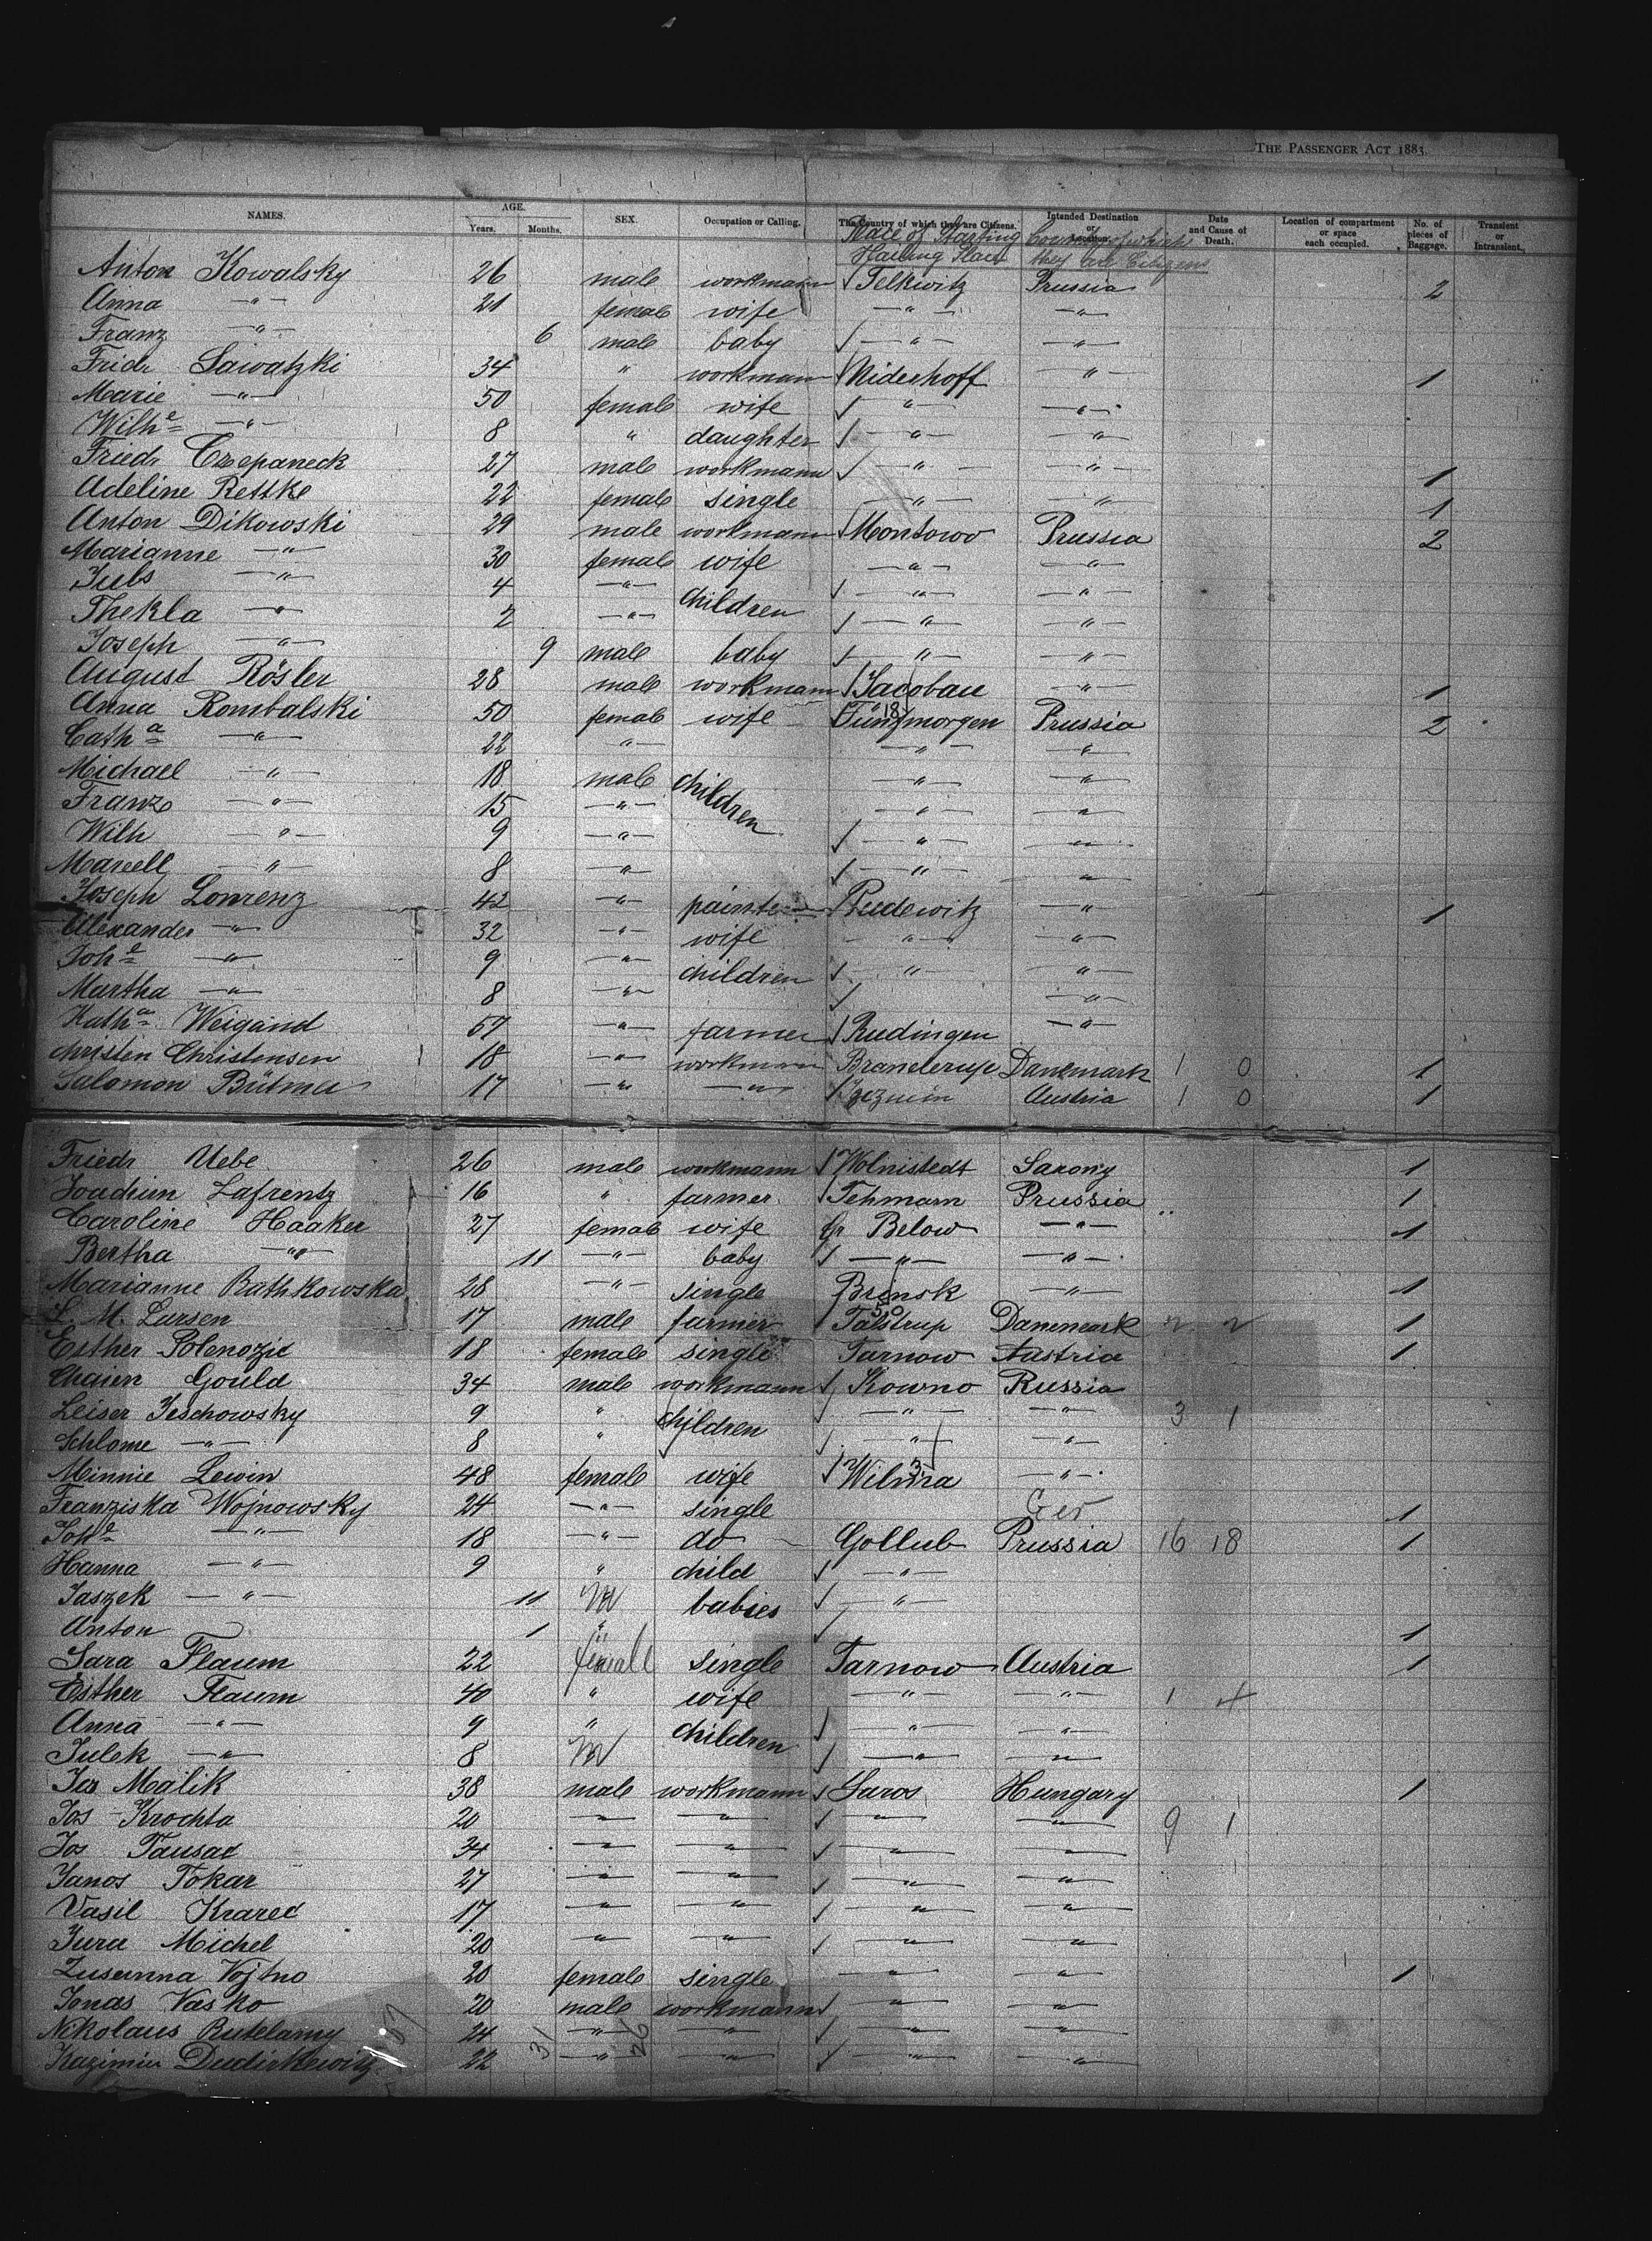 THE PASSENGER ACT 1883.
NAMES. AGE. Years. Months. SEX. Occupation or Calling. The Country of which they are Citizens. Intended Destination or Location. Date and Cause of Death. Location of compartment or space each occupied. No. of pieces of Baggage. Transient or Intransient.
Place of Starting Country of which
Hailing Place they are Citizens
Anton Kowalsky 26 male workmann Telkwitz Prussia 2
Anna -"- 21 female wife -"- -"-
Franz -"- 6 male baby -"- -"-
Fridr Sawatzki 34 " workmann Niderhoff -"- 1
Marie -"- 50 female wife -"- -"-
Wilhe -"- 8 " daughter -"- -"-
Friedr Czepaneck 27 male workmann -"- -"- 1
Adeline Rettke 22 female single -"- -"- 1
Anton Dikowski 29 male workmann Montowo Prussia 2
Marianne -"- 30 female wife -"- -"-
Juls -"- 4 -"- children -"- -"-
Thekla -"- 2 -"- -"- -"-
Joseph -"- 9 male baby -"- -"-
August Rösler 28 male workmann Jacobau -"- 1
Anna Rombalski 50 female wife Fünfmorgen Prussia 2
Catha -"- 22 -"- -"- -"-
Michael -"- 18 male children -"- -"-
Franz -"- 15 -"- -"- -"-
Wilh -"- 9 -"- -"- -"-
Marcell -"- 8 -"- -"- -"-
Joseph Lorrenz 42 -"- painter Pudewitz -"- 1
Alexander -"- 32 -"- wife -"- -"-
Johe -"- 9 -"- children -"- -"-
Martha -"- 8 -"- -"-
Katha Weigand 57 -"- farmer Rudingen -"-
Christin Christensen 18 -"- workmann Branderup Danemark 1 0 1
Salomon Bütmer 17 -"- -"- Austria 1 0 1
Friedr Uebe 26 male workmann Wolnistedt Saxony 1
Joachim Lafrentz 16 " farmer Fehmarn Prussia 1
Caroline Haaker 27 female wife Gr Below -"- 1
Bertha -"- 11 -"- baby -"- -"-
Marianne Rathkowska 28 -"- single Brinsk -"- 1
L. M. Larsen 17 male farmer Tastrup Danemark 2 2 1
Esther Polenozie 18 female single Tarnow Austria 1
Chaien Gould 34 male workmann Kowno Russia
Leiser Jeschowsky 9 " children -"- -"- 3 1
Schlome -"- 8 " -"- -"-
Minnie Lewin 48 female wife Wilna -"-
Franziska Wojnowsky 24 -"- single Ger 1
Johe -"- 18 -"- do Gollub Prussia 16 18 1
Hanna -"- 9 " child -"-
Jaszek -"- 11 M babies -"-
Anton 1 " 1
Sara Flaum 22 female single Tarnow Austria 1
Esther Flaum 40 " wife -"- -"- 1 4
Anna -"- 9 " children -"- -"-
Julek -"- 8 M -"- -"-
Jos Malik 38 male workmann Saros Hungary 1
Jos Krochta 20 -"- -"- -"- -"- 9 1
Jos Tausad 34 -"- -"- -"- -"-
Janos Tokar 27 -"- -"- -"- -"-
Vasil Krarec 17 -"- -"- -"- -"-
Jura Michel 20 -"- -"- -"- -"-
Zusanna Vojtno 20 female single -"- -"- 1
Jonas Vasko 20 male workmann -"- -"-
Nikolaus Rutelamy 24 -"- -"- -"- -"-
Kazimir Dudirkewitz 22 -"- -"- -"- -"-
31 26